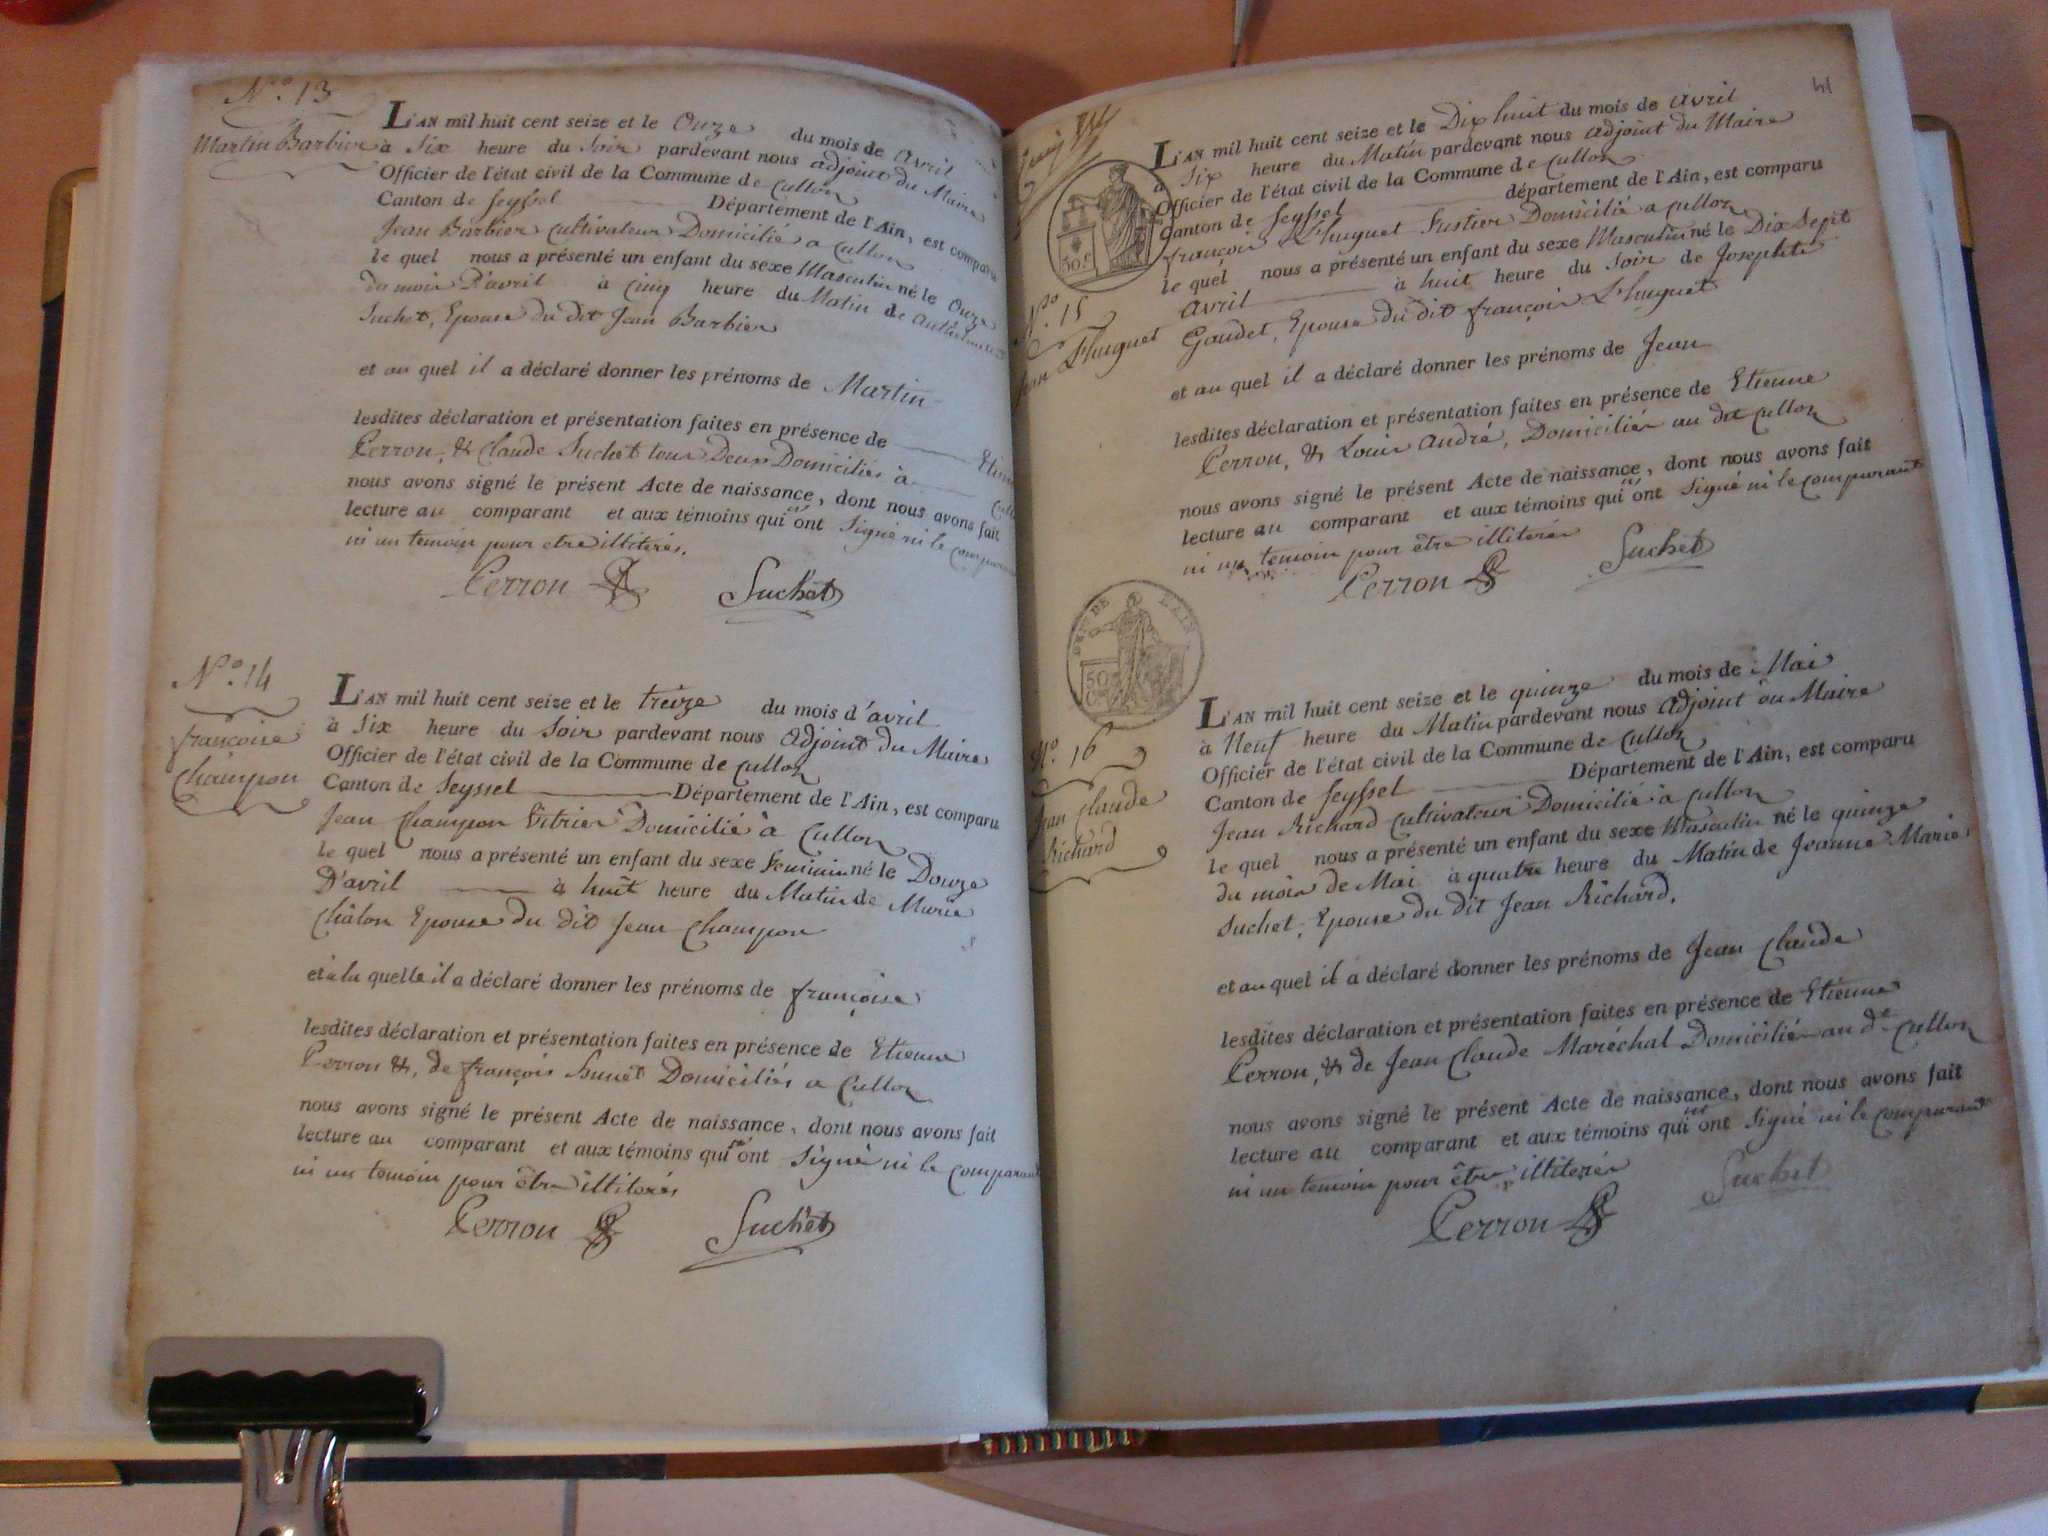 N.º 13
Martin Barbier
L'AN mil huit cent seize et le Onze du mois de avril
à Six heure du Soir pardevant nous adjoint du Maire
Officier de l'état civil de la Commune de Culloz
Canton de Seyssel Département de l'Ain, est comparu
Jean Barbier Cultivateur Domicilié a Culloz
le quel nous a présenté un enfant du sexe Masculin né le Onze
du mois D'avril à Cinq heure du Matin de
Suchet, Epouse du dit Jean Barbier
et au quel il a déclaré donner les prénoms de Martin
lesdites déclaration et présentation faites en présence de
Perron, & Claude Suchet tous Deux Domiciliés à
nous avons signé le présent Acte de naissance, dont nous avons fait
lecture au comparant et aux témoins qui ont Signé ni le
ni un temoin pour etre illiterés.
Perron Suchet
N.º 14
françoise
Champon
L'AN mil huit cent seize et le treize du mois d'avril
à Six heure du Soir pardevant nous Adjoint du Maire
Officier de l'état civil de la Commune de Culloz
Canton de Seyssel Département de l'Ain, est comparu
Jean Champon Vitrier Domicilié à Culloz
le quel nous a présenté un enfant du sexe Feminin né le Douze
D'avril à huit heure du Matin de Marie
Châlon Epouse du dit Jean Champon
et à la quelle il a déclaré donner les prénoms de françoise
lesdites déclaration et présentation faites en présence de Etienne
Perron &, de françois Domiciliés a Culloz
nous avons signé le présent Acte de naissance, dont nous avons fait
lecture au comparant et aux témoins qui ont Signé ni le comparant
ni un temoin pour être illiterés
Perron Suchet
41
50 C.
N.º 15
Jean L'huguet
L'AN mil huit cent seize et le Dix huit du mois de avril
à Six heure du Matin pardevant nous adjoint du Maire
Officier de l'état civil de la Commune de Culloz
Canton de Seyssel département de l'Ain, est comparu
françois L'huguet Domicilié a Culloz
le quel nous a présenté un enfant du sexe Masculin né le Dix Sept
avril à huit heure du Soir de Josephte
Gaudet, Epouse du dit françois L'huguet
et au quel il a déclaré donner les prénoms de Jean
lesdites déclaration et présentation faites en présence de Etienne
Perron, & Louis andré, Domiciliés au dit Culloz
nous avons signé le présent Acte de naissance, dont nous avons fait
lecture au comparant et aux témoins qui ont Signé ni le comparant
ni un temoin pour être illiterés
Perron Suchet
DEP. DE L'AIN
50 C.
N.º 16
Jean Claude
Richard
L'AN mil huit cent seize et le quinze du mois de Mai
à Neuf heure du Matin pardevant nous Adjoint au Maire
Officier de l'état civil de la Commune de Culloz
Canton de Seyssel Département de l'Ain, est comparu
Jean Richard Cultivateur Domicilié à Culloz
le quel nous a présenté un enfant du sexe Masculin né le quinze
du mois de Mai à quatre heure du Matin de Jeanne Marie
Suchet, Epouse du dit Jean Richard.
et au quel il a déclaré donner les prénoms de Jean Claude
lesdites déclaration et présentation faites en présence de Etienne
Perron, & de Jean Claude Maréchal Domiciliés au dt Culloz
nous avons signé le présent Acte de naissance, dont nous avons fait
lecture au comparant et aux témoins qui ont Signé ni le comparant
ni un temoin pour être illiterés
Perron Suchet